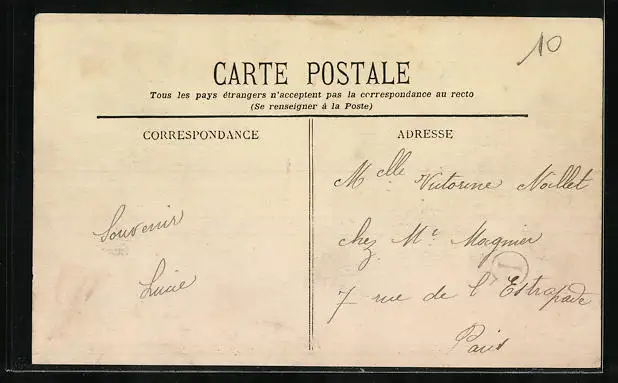 10
CARTE POSTALE
Tous les pays étrangers n'acceptent pas la correspondance au recto
(Se renseigner à la Poste)
CORRESPONDANCE
ADRESSE
Melle Victorine Noillet
chez Mr. Magnier
7 rue de l'Estrapade
Paris
Souvenir
Lucie